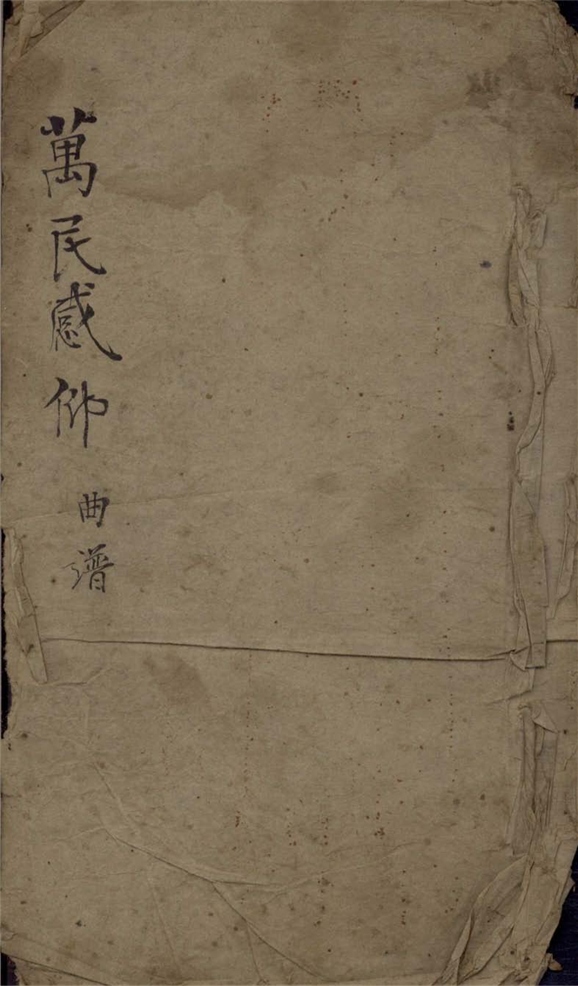 萬民感仰 曲谱